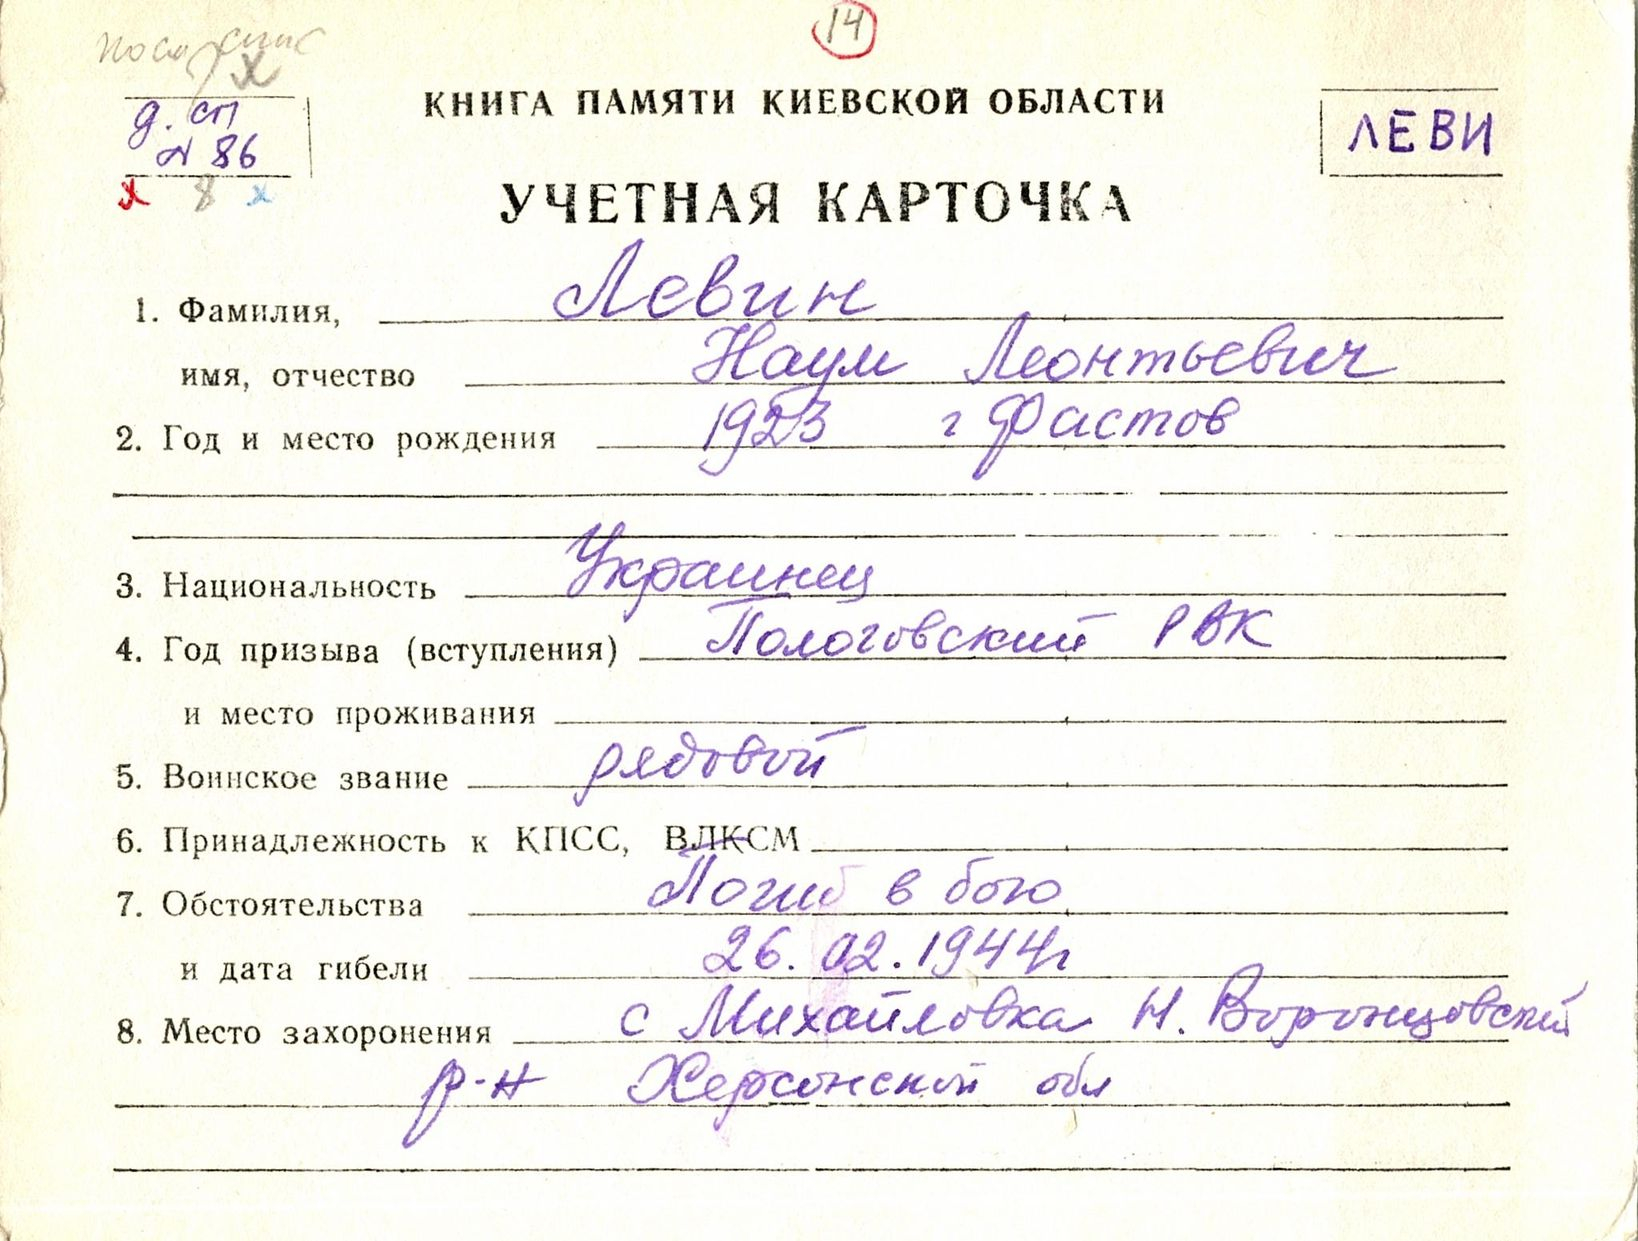 14
КНИГА ПАМЯТИ КИЕВСКОЙ ОБЛАСТИ
д. сп
N 86
ЛЕВИ
х 8 х
УЧЕТНАЯ КАРТОЧКА
1. Фамилия, Левин
имя, отчество Наум Леонтьевич
2. Год и место рождения 1923 г Фастов
3. Национальность Украинец
4. Год призыва (вступления) Пологовский РВК
и место проживания
5. Воинское звание рядовой
6. Принадлежность к КПСС, ВЛКСМ
7. Обстоятельства Погиб в бою
и дата гибели 26.02.1944г
8. Место захоронения с Михайловка Н. Воронцовский
р-н Херсонской обл